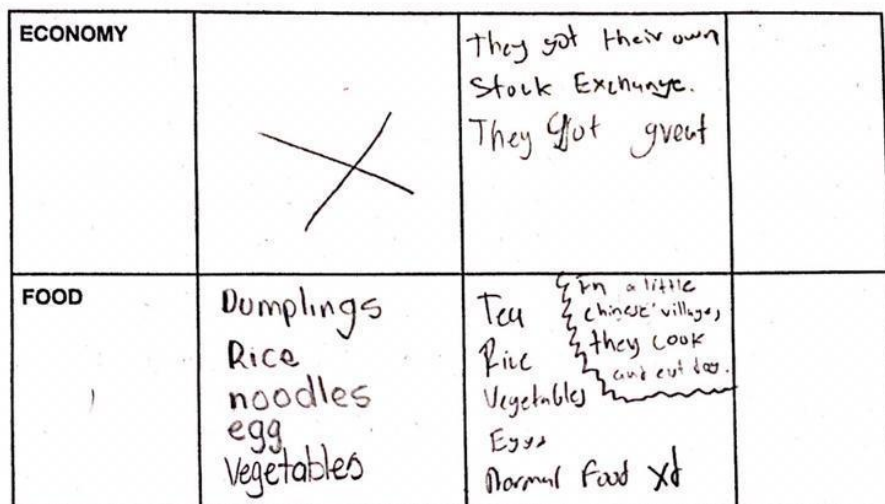 ECONOMY
They got their own
Stock Exchange.
They got great
FOOD
Dumplings
Rice
noodles
egg
Vegetables
Tea
Rice
Vegetables
Eggs
Normal Food xd
In a little
chinese village,
they cook
and eat dog.